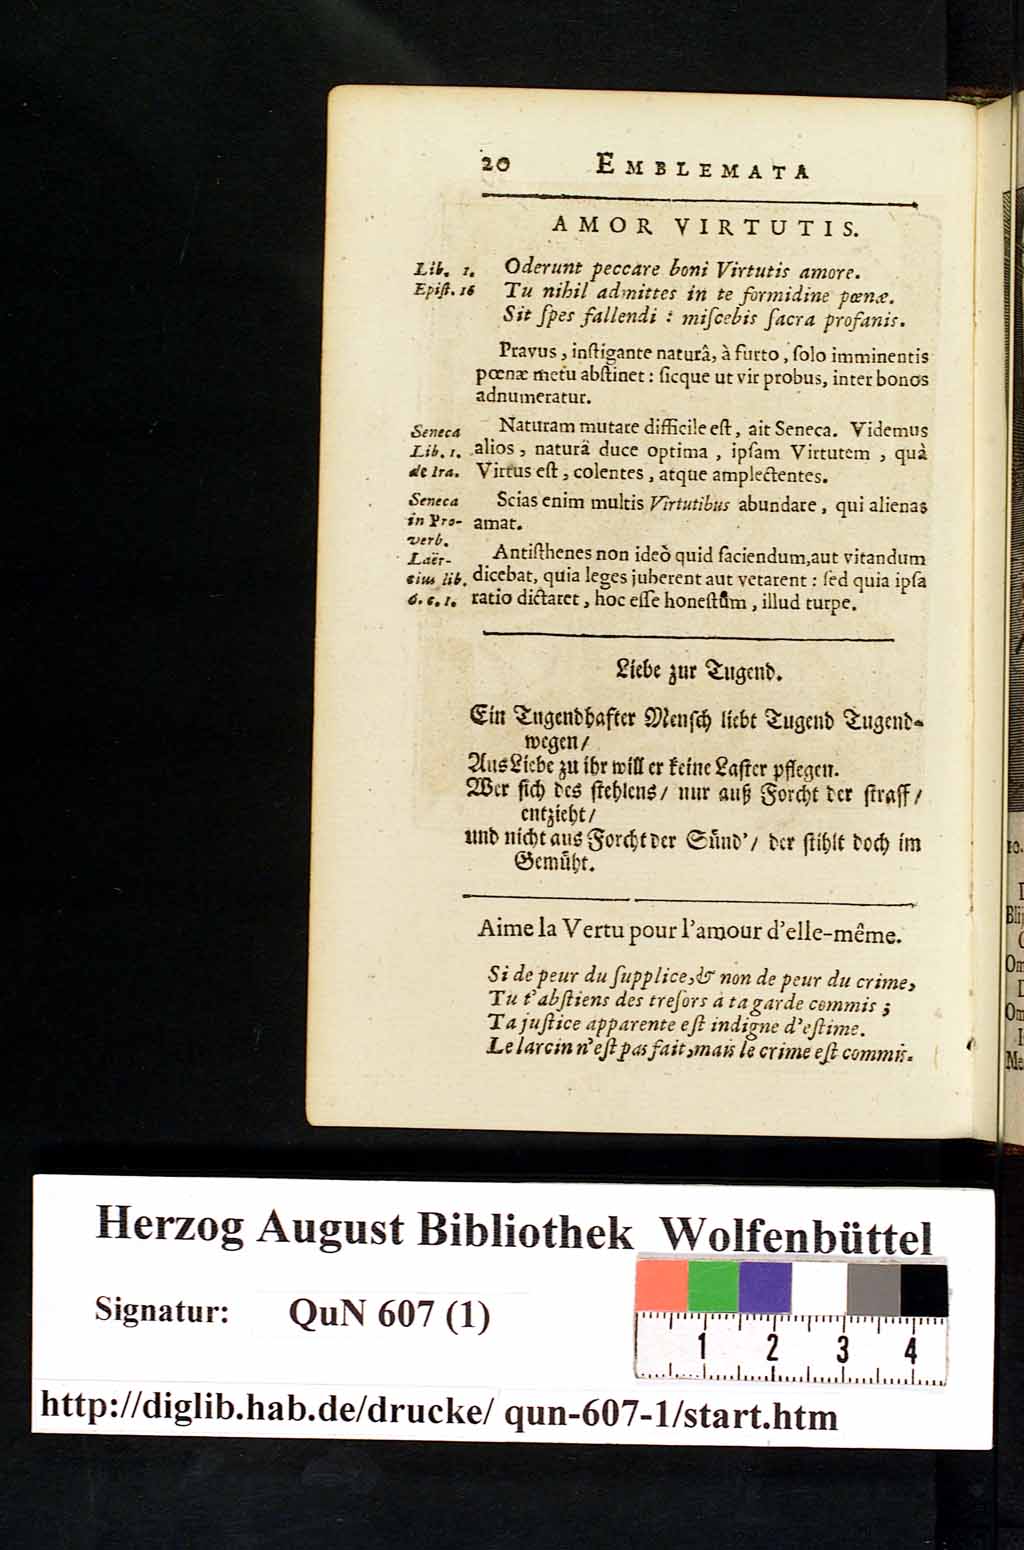 20 EMBLEMATA
AMOR VIRTUTIS.
Lib. 1. Oderunt peccare boni Virtutis amore.
Epiſt. 16 Tu nihil admittes in te formidine pœnæ.
Sit ſpes fallendi : miſcebis ſacra profanis.
Pravus, inſtigante naturâ, à furto, ſolo imminentis
pœnæ metu abſtinet : ſicque ut vir probus, inter bonos
adnumeratur.
Seneca Naturam mutare difficile eſt, ait Seneca. Videmus
Lib. 1. alios, naturâ duce optima, ipſam Virtutem, quà
de Ira. Virtus eſt, colentes, atque amplectentes.
Seneca Scias enim multis Virtutibus abundare, qui alienas
in Pro- amat.
verb.
Laër- Antiſthenes non ideò quid faciendum, aut vitandum
tius lib. dicebat, quia leges juberent aut vetarent : ſed quia ipſa
6. c. 1. ratio dictaret, hoc eſſe honeſtum, illud turpe.
Liebe zur Tugend.
Ein Tugendhafter Menſch liebt Tugend Tugend-
wegen/
Aus Liebe zu ihr will er keine Laſter pflegen.
Wer ſich des ſtehlens/ nur auß Forcht der ſtraff/
entzieht/
und nicht aus Forcht der Sünd'/ der ſtihlt doch im
Gemüht.
Aime la Vertu pour l'amour d'elle-même.
Si de peur du ſupplice, & non de peur du crime,
Tu t'abſtiens des treſors à ta garde commis ;
Ta juſtice apparente eſt indigne d'eſtime.
Le larcin n'eſt pas fait, mais le crime eſt commis.
10.
Blij
Om
Om
Me
Herzog August Bibliothek Wolfenbüttel
Signatur: QuN 607 (1)
1 2 3 4
http://diglib.hab.de/drucke/ qun-607-1/start.htm